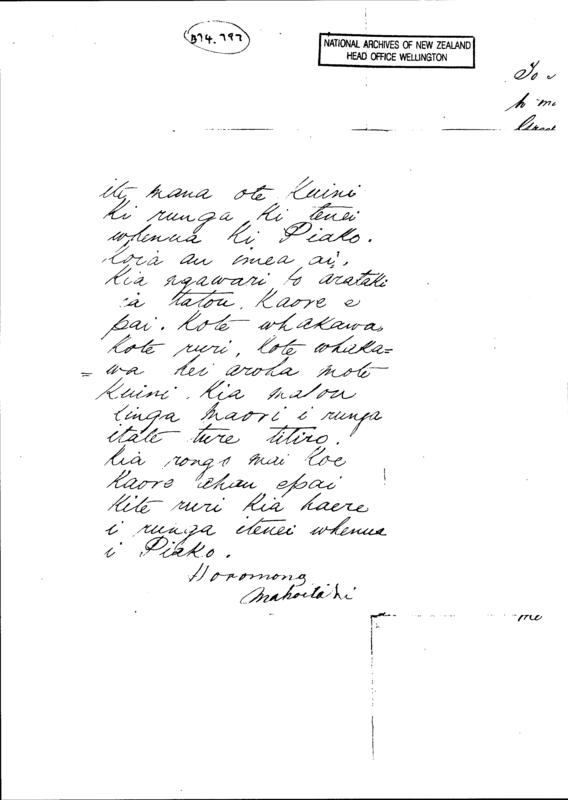 B74.797
NATIONAL ARCHIVES OF NEW ZEALAND
HEAD OFFICE WELLINGTON
To
h
ite mana ote Kuini
Ki runga Ki tenei
whenua Ki Piako.
Koia au imea ai,
Kia ngawari to arataki
ia tatou. Kaore e
pai. Kote whakawa
Kote ruri, Kote whaka=
= wa hei aroha mote
Kuini. Kia matou
tinga Maori i runga
itate ture titiro.
Kia rongo mai Koe
Kaore ahau epai
Kite ruri Kia haere
i runga itenei whenua
i Piako.
Horomona
Mahoitahi
me